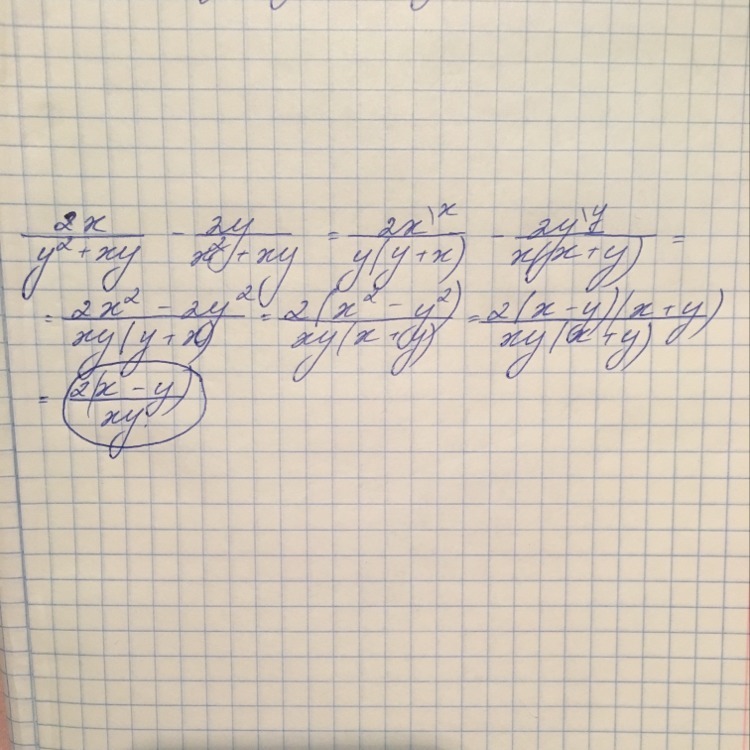 2x/(y²+xy) - 2y/(x²+xy) = 2x\x/(y(y+x)) - 2y\y/(x(x+y)) =
= (2x² - 2y²)/(xy(y+x)) = 2(x² - y²)/(xy(x+y)) = 2(x-y)(x+y)/(xy(x+y))
= 2(x-y)/xy